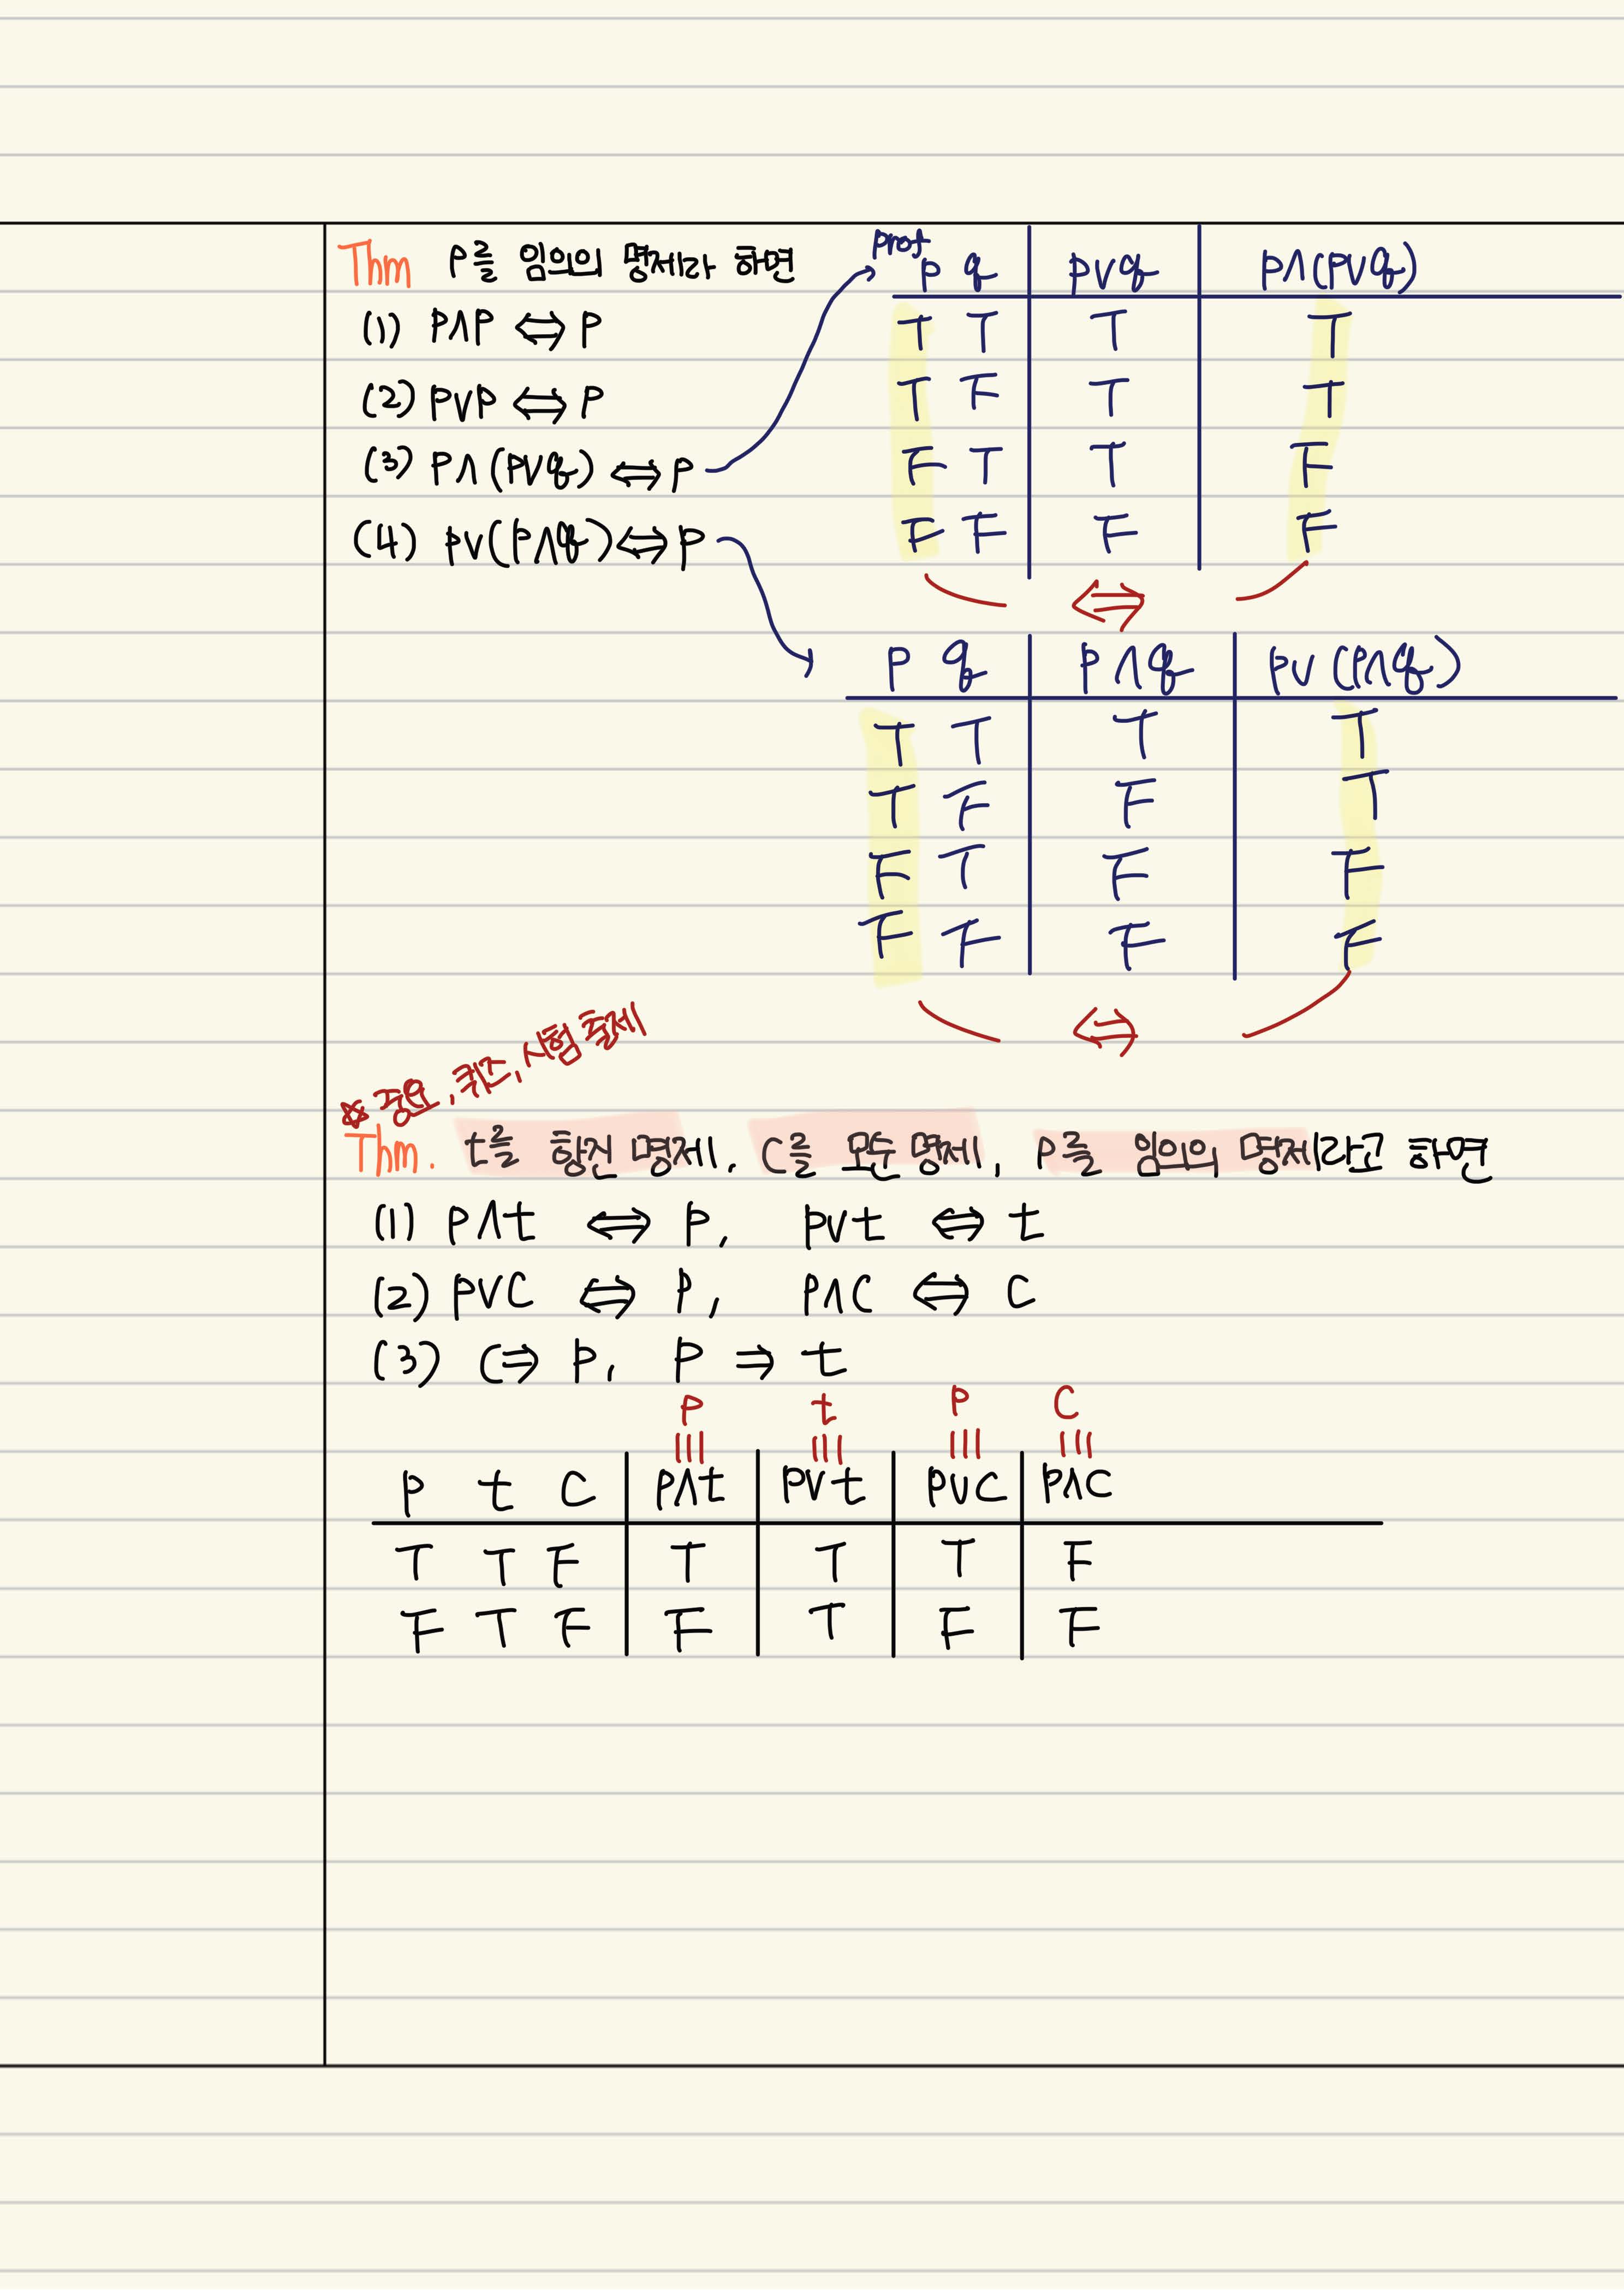 Thm p를 임의의 명제라 하면
(1) p∧p ⇔ p
(2) p∨p ⇔ p
(3) p∧(p∨q) ⇔ p
(4) p∨(p∧q) ⇔ p
proof
p q p∨q p∧(p∨q)
T T T T
T F T T
F T T F
F F F F
⇔
p q p∧q p∨(p∧q)
T T T T
T F F T
F T F F
F F F F
⇔
☆ 중요, 퀴즈, 시험 출제
Thm. t를 항진 명제, C를 모순 명제, p를 임의의 명제라고 하면
(1) p∧t ⇔ p, p∨t ⇔ t
(2) p∨C ⇔ p, p∧C ⇔ C
(3) C ⇒ p, p ⇒ t
p t p C
||| ||| ||| |||
p t C p∧t p∨t p∨C p∧C
T T F T T T F
F T F F T F F